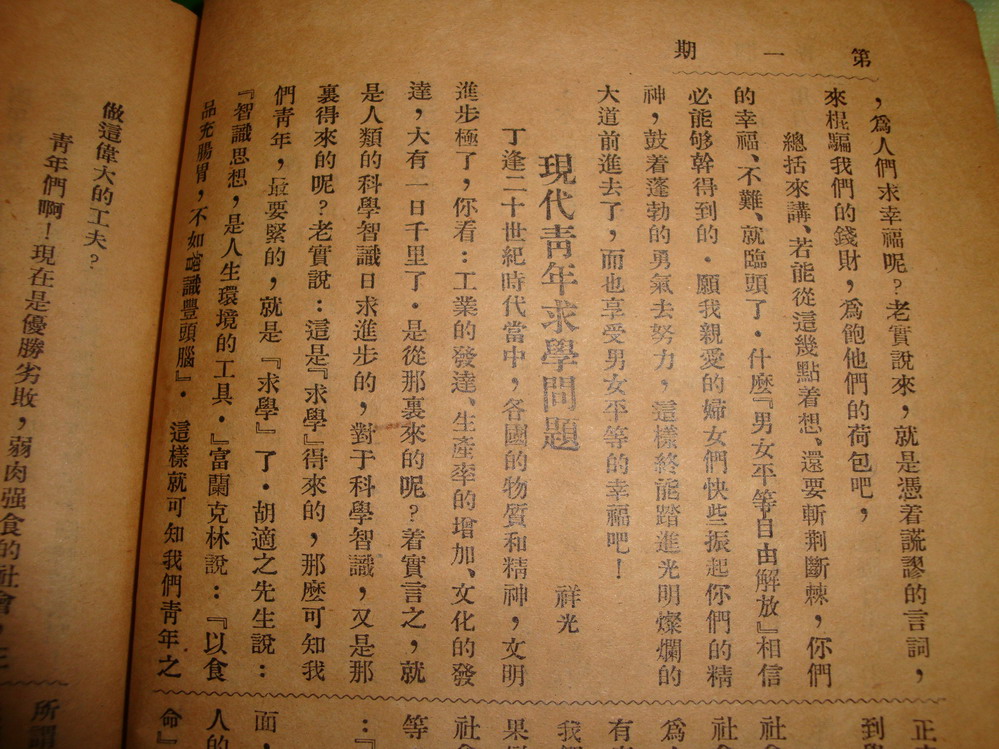 第一期
，爲人們求幸福呢？老實說來，就是憑着謊謬的言詞，
來棍騙我們的錢財，爲飽他們的荷包吧，
總括來講、若能從這幾點着想、還要斬荆斷棘，你們
的幸福、不難、就臨頭了．什麽『男女平等自由解放』相信
必能够幹得到的．願我親愛的婦女們快些振起你們的精
神，鼓着蓬勃的勇氣去努力，這樣終能踏進光明燦爛的
大道前進去了，而也享受男女平等的幸福吧！
現代靑年求學問題
祥光
丁逢二十世紀時代當中，各國的物質和精神，文明
進步極了，你看：工業的發達、生產率的增加、文化的發
達，大有一日千里了．是從那裏來的呢？着實言之，就
是人類的科學智識日求進步的，對于科學智識，又是那
裏得來的呢？老實說：這是『求學』得來的，那麽可知我
們靑年，最要緊的，就是『求學』了．胡適之先生說：
『智識思想，是人生環境的工具．』富蘭克林說：『以食
品充腸胃，不如智識豐頭腦』．這樣就可知我們靑年之
正
到
社
社會
爲
有
我
果
社會
等
：『
面，
人的
命』
做這偉大的工夫？
靑年們啊！現在是優勝劣敗，弱肉强食的社會，
所謂